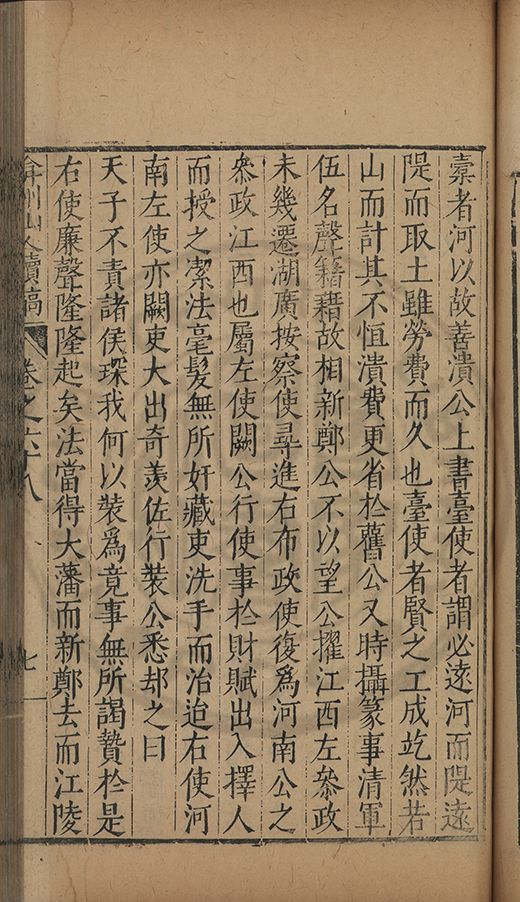 橐者河以故善潰公上書臺使者謂必遠河而隄遠
隄而取土雖勞費而久也臺使者賢之工成屹然若
山而計其不恒潰費更省於舊公又時攝篆事清軍
伍名聲籍藉故相新鄭公不以望公擢江西左叅政
未幾遷湖廣按察使尋進右布政使復為河南公之
叅政江西也屬左使闕公行使事於財賦出入擇人
而授之潔法毫髮無所奸藏吏洗手而治迨右使河
南左使亦闕吏大出奇羨佐行裝公悉却之曰
天子不責諸侯琛我何以裝為竟事無所謁贄於是
右使廉聲隆隆起矣法當得大藩而新鄭去而江陵
弇州山人續稿 卷之六十八 七